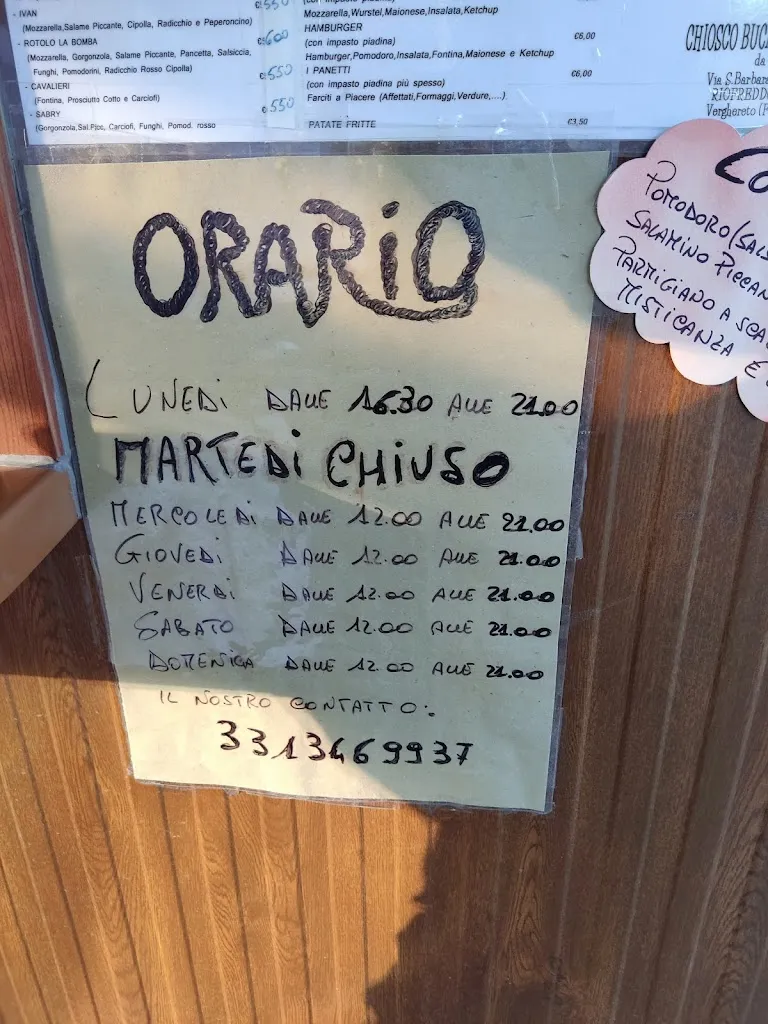 - IVAN
(Mozzarella,Salame Piccante, Cipolla, Radicchio e Peperoncino)
- ROTOLO LA BOMBA €600
(Mozzarella, Gorgonzola, Salame Piccante, Pancetta, Salsiccia,
Funghi, Pomodorini, Radicchio Rosso Cipolla) €550
- CAVALIERI
(Fontina, Prosciutto Cotto e Carciofi) €550
- SABRY
(Gorgonzola,Sal.Picc, Carciofi, Funghi, Pomod. rosso
Mozzarella,Wurstel,Maionese,Insalata,Ketchup
HAMBURGER €6,00
(con impasto piadina)
Hamburger,Pomodoro,Insalata,Fontina,Maionese e Ketchup
I PANETTI €6,00
(con impasto piadina più spesso)
Farciti a Piacere (Affettati,Formaggi,Verdure,....).
PATATE FRITTE €3,50
CHIOSCO
da
Via S.Barbara
RIOFREDDO
Verghereto
POMODORO
SALAMINO
PARMIGIANO A
MISTICANZA E
ORARIO
LUNEDI DALLE 16.30 ALLE 21.00
MARTEDI CHIUSO
MERCOLEDI DALLE 12.00 ALLE 21.00
GIOVEDI DALLE 12.00 ALLE 21.00
VENERDI DALLE 12.00 ALLE 21.00
SABATO DALLE 12.00 ALLE 21.00
DOMENICA DALLE 12.00 ALLE 21.00
IL NOSTRO CONTATTO:
3313469937